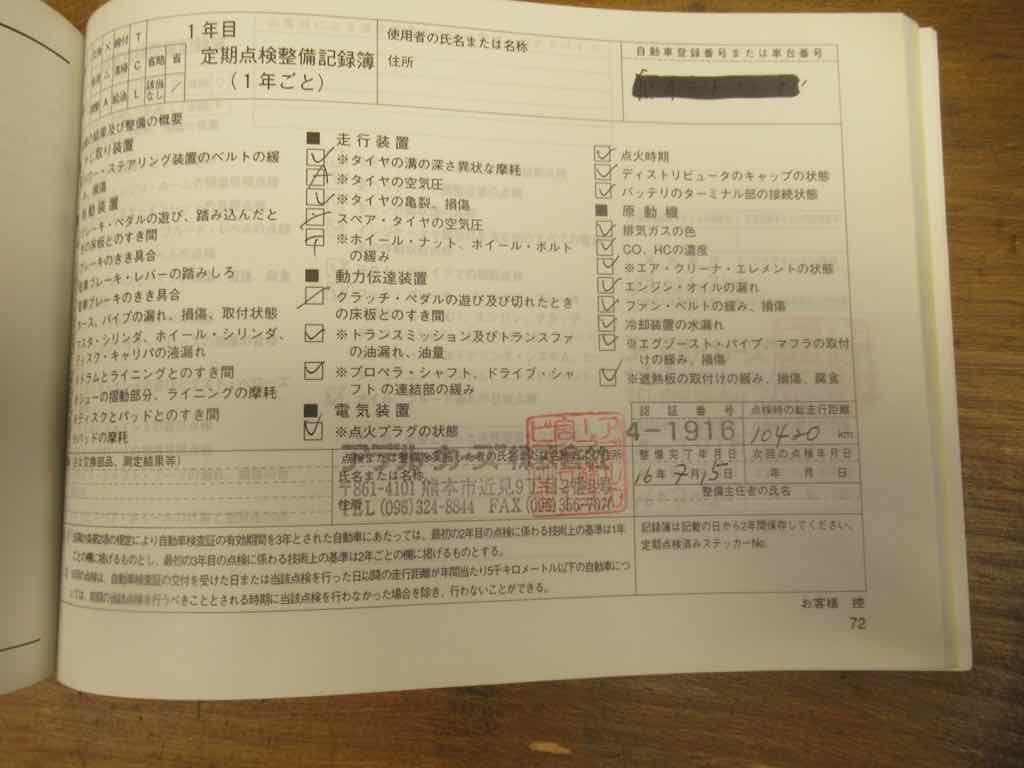 1年目
定期点検整備記録簿
(1年ごと)
使用者の氏名または名称
住所
自動車登録番号または車台番号
の結果及び整備の概要
じ取り装置
ワー・ステアリング装置のベルトの緩
、損傷
動装置
ブレーキ・ペダルの遊び、踏み込んだと
の床板とのすき間
ブレーキのきき具合
ブレーキ・レバーの踏みしろ
ブレーキのきき具合
ホース、パイプの漏れ、損傷、取付状態
マスタ・シリンダ、ホイール・シリンダ、
ディスク・キャリパの液漏れ
ドラムとライニングとのすき間
シューの摺動部分、ライニングの摩耗
ディスクとパッドとのすき間
パッドの摩耗
■ 走行装置
※タイヤの溝の深さ異状な摩耗
※タイヤの空気圧
※タイヤの亀裂、損傷
スペア・タイヤの空気圧
※ホイール・ナット、ホイール・ボルト
の緩み
■ 動力伝達装置
クラッチ・ペダルの遊び及び切れたとき
の床板とのすき間
※トランスミッション及びトランスファ
の油漏れ、油量
※プロペラ・シャフト、ドライブ・シャ
フトの連結部の緩み
■ 電気装置
※点火プラグの状態
点火時期
ディストリビュータのキャップの状態
バッテリのターミナル部の接続状態
■ 原動機
排気ガスの色
CO、HCの濃度
※エア・クリーナ・エレメントの状態
エンジン・オイルの漏れ
ファン・ベルトの緩み、損傷
冷却装置の水漏れ
※エグゾースト・パイプ、マフラの取付
けの緩み、損傷
※遮熱板の取付けの緩み、損傷、腐食
認証番号
点検時の総走行距離
4-1916
10420 km
整備完了年月日
次回の点検年月日
16年7月15日
年 月 日
整備主任者の氏名
交換部品、測定結果等)
氏名または名称
住所
〒861-4101 熊本市近見9丁目
TEL (096) 324-8844 FAX (096)
の規定により自動車検査証の有効期間を3年とされた自動車にあたっては、最初の2年目の点検に係わる技術上の基準は1年
ごとの欄に掲げるものとし、最初の3年目の点検に係わる技術上の基準は2年ごとの欄に掲げるものとする。
の点検は、自動車検査証の交付を受けた日または当該点検を行った日以降の走行距離が年間当たり5千キロメートル以下の自動車につ
いては、前回の当該点検を行うべきこととされる時期に当該点検を行わなかった場合を除き、行わないことができる。
記録簿は記載の日から2年間保存してください。
定期点検済みステッカーNo.
お客様 控
72